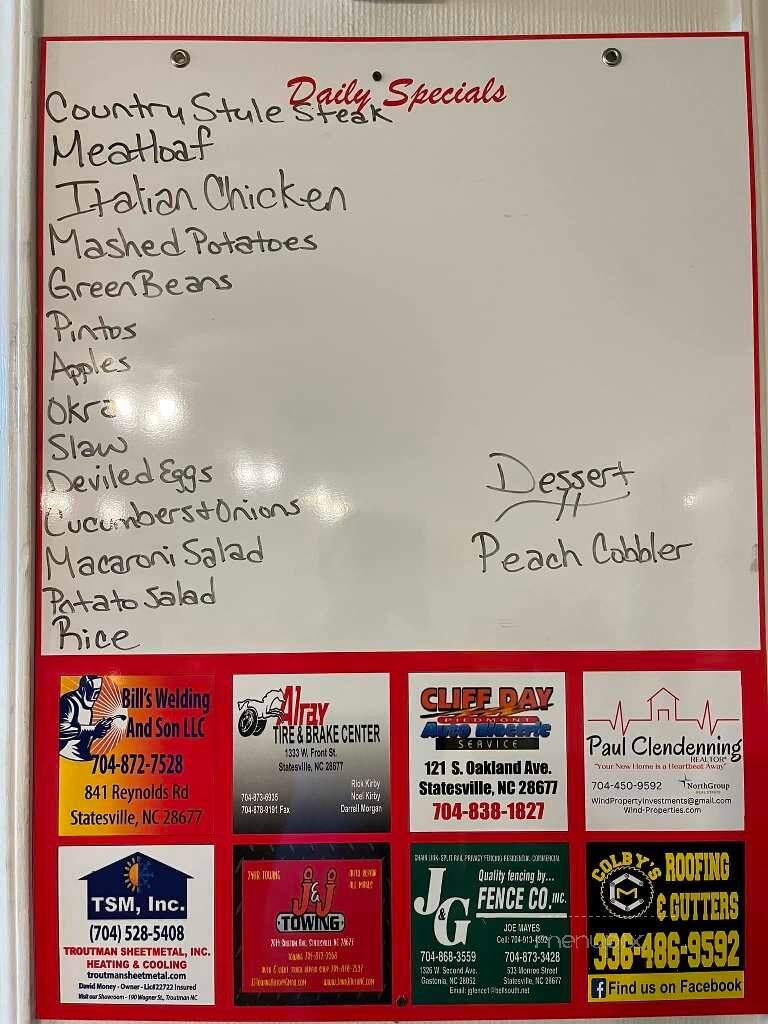 Daily Specials
Country Style Steak
Meatloaf
Italian Chicken
Mashed Potatoes
Green Beans
Pintos
Apples
Okra
Slaw
Deviled Eggs
Cucumbers + Onions
Macaroni Salad
Potato Salad
Rice
Dessert
Peach Cobbler
Bill's Welding
And Son LLC
704-872-7528
841 Reynolds Rd
Statesville, NC 28677
Alray
TIRE & BRAKE CENTER
1333 W. Front St.
Statesville, NC 28677
Rick Kirby
704-873-6935
Noel Kirby
704-878-9191 Fax
Darrell Morgan
CLIFF DAY
PIEDMONT
Auto Electric
SERVICE
121 S. Oakland Ave.
Statesville, NC 28677
704-838-1827
Paul Clendenning
REALTOR®
"Your New Home is a Heartbeat Away"
704-450-9592
NorthGroup
REAL ESTATE
WindPropertyInvestments@gmail.com
Wind-Properties.com
TSM, Inc.
(704) 528-5408
TROUTMAN SHEETMETAL, INC.
HEATING & COOLING
troutmansheetmetal.com
David Money - Owner - Lic#22722 Insured
Visit our Showroom - 190 Wagner St., Troutman NC
24HR TOWING
AUTO REPAIR
ALL MAKES
J&J
TOWING
STATESVILLE NC 28677
CHAIN LINK- SPLIT RAIL PRIVACY FENCING RESIDENTIAL COMMERCIAL
Quality fencing by...
J&G
FENCE CO. INC.
JOE MAYES
704-868-3559
704-873-3428
1326 W. Second Ave.
533 Monroe Street
Gastonia, NC 28052
Statesville, NC 28677
Email: jgfence1@bellsouth.net
COLBY'S
ROOFING
& GUTTERS
336-486-9592
Find us on Facebook